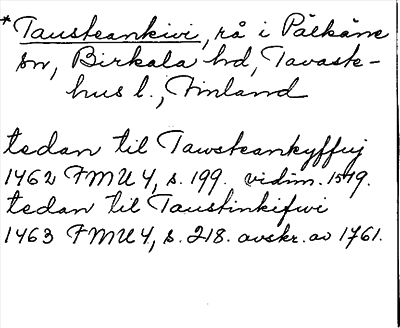 *Tausteankivi, rå i Pälkäne
sn, Birkala hd, Tavast-
hus l., Finland
tedan til Tawsteankyffuj
1462 FMU 4, s. 199. vidim. 1579.
tedan til Taustinkifwi
1463 FMU 4, s. 218. avskr. av 1761.